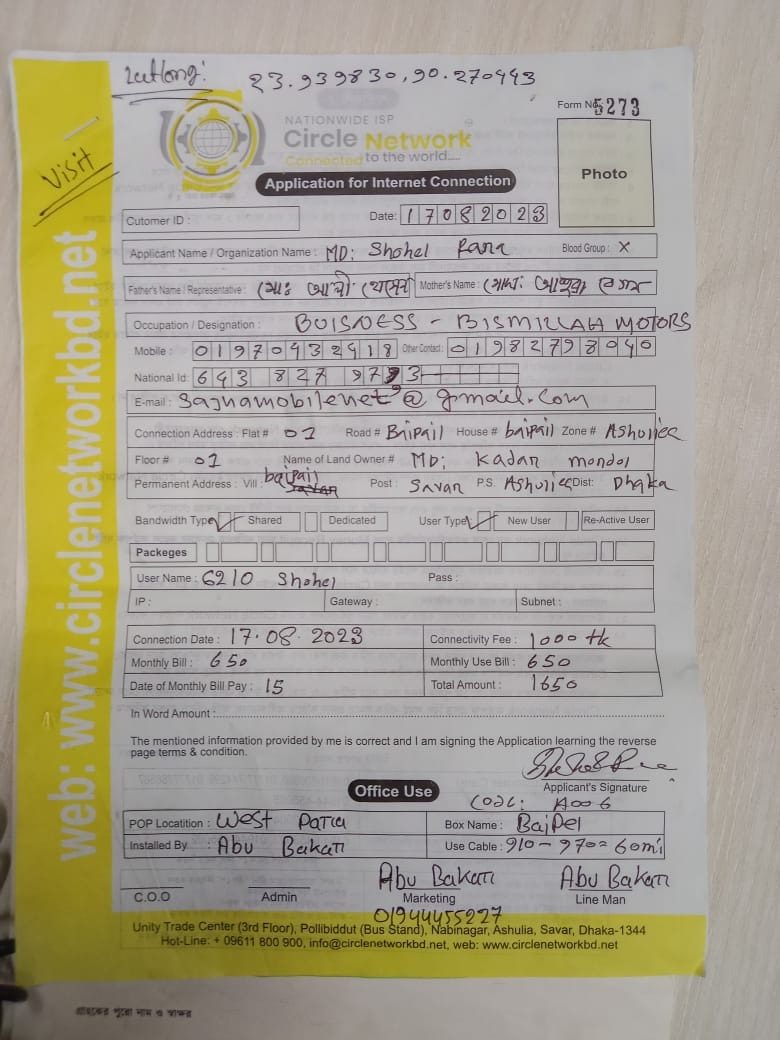 Lat Long: 23.939830,90.270443
Form No 5273
NATIONWIDE ISP
Circle Network
Connected to the world....
Photo
Visit
Application for Internet Connection
Cutomer ID :
Date: 17082023
Applicant Name / Organization Name : MD: Shohel Rana Blood Group : X
Father's Name / Representative : মোঃ আলী হোসেন Mother's Name : মোছাঃ বেগম
Occupation / Designation : BUISNESS - BISMILLAH MOTORS
Mobile : 01970432418 Other Contact : 01982798040
National Id: 643 827 9773
E-mail : @gmail.com
Connection Address : Flat # 01 Road # Baipail House # baipail Zone # Ashuliea
Floor # 01 Name of Land Owner # MD: Kadar mondol
Permanent Address : Vill : baipail Post : Savar P.S. Ashuliea Dist: Dhaka
Bandwidth Type Shared Dedicated User Type New User Re-Active User
Packeges
User Name : 6210 Shohel Pass :
IP : Gateway : Subnet :
Connection Date : 17.08.2023 Connectivity Fee : 1000 tk
Monthly Bill : 650 Monthly Use Bill : 650
Date of Monthly Bill Pay : 15 Total Amount : 1650
In Word Amount :
The mentioned information provided by me is correct and I am signing the Application learning the reverse
page terms & condition.
Applicant's Signature
Office Use
Code: A006
POP Locatition : West Para Box Name : Bajpel
Installed By : Abu Bakar Use Cable : 910-970= 60mi
Abu Bakar Abu Bakar
C.O.O Admin Marketing Line Man
01944455227
Unity Trade Center (3rd Floor), Pollibiddut (Bus Stand), Nabinagar, Ashulia, Savar, Dhaka-1344
Hot-Line: + 09611 800 900, info@circlenetworkbd.net, web: www.circlenetworkbd.net
web: www.circlenetworkbd.net
গ্রাহকের পুরো নাম ও স্বাক্ষর